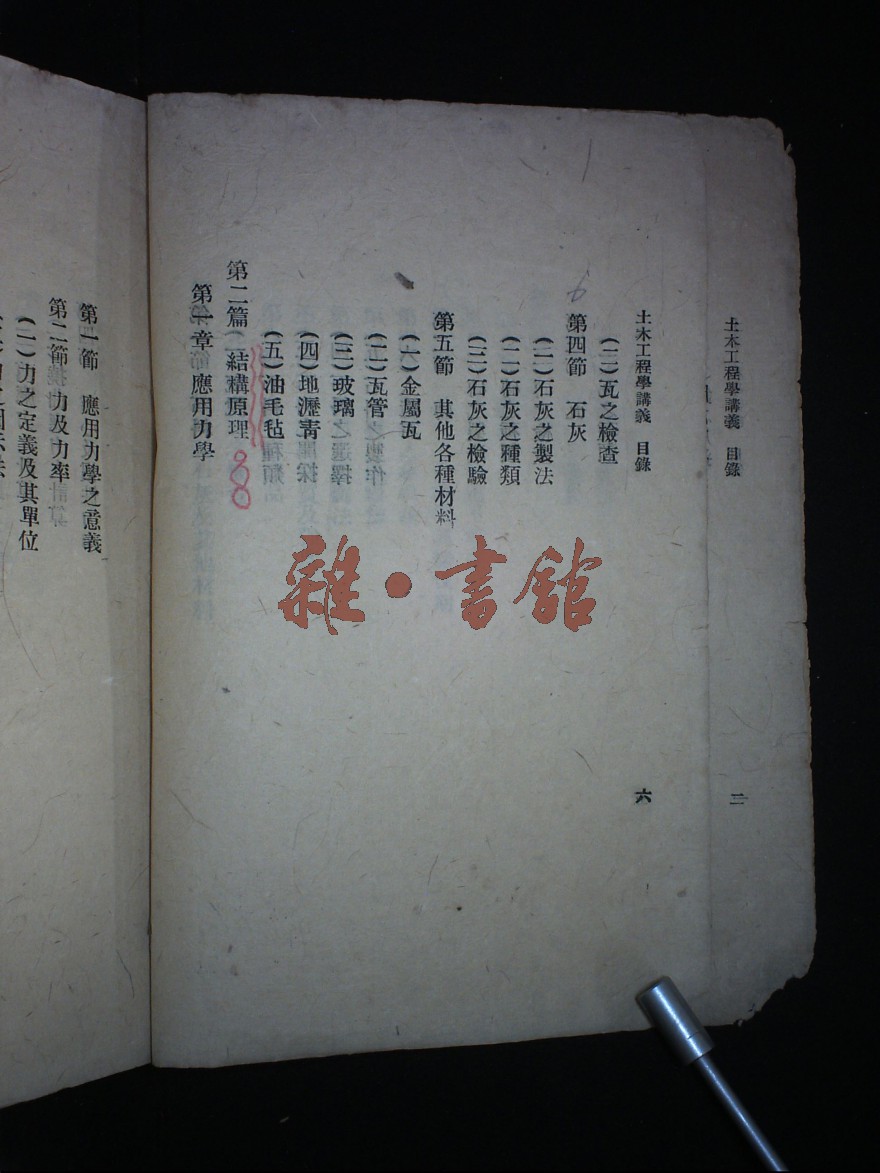 土木工程學講義 目錄
二
土木工程學講義 目錄
六
(二)瓦之檢查
第四節 石灰
(一)石灰之製法
(二)石灰之種類
(三)石灰之檢驗
第五節 其他各種材料
(六)金屬瓦
(二)瓦管
(三)玻璃
(四)地瀝青
(五)油毛毡
第二篇 結構原理
第一章 應用力學
第一節 應用力學之意義
第二節 力及力率
(一)力之定義及其單位
雜·書館